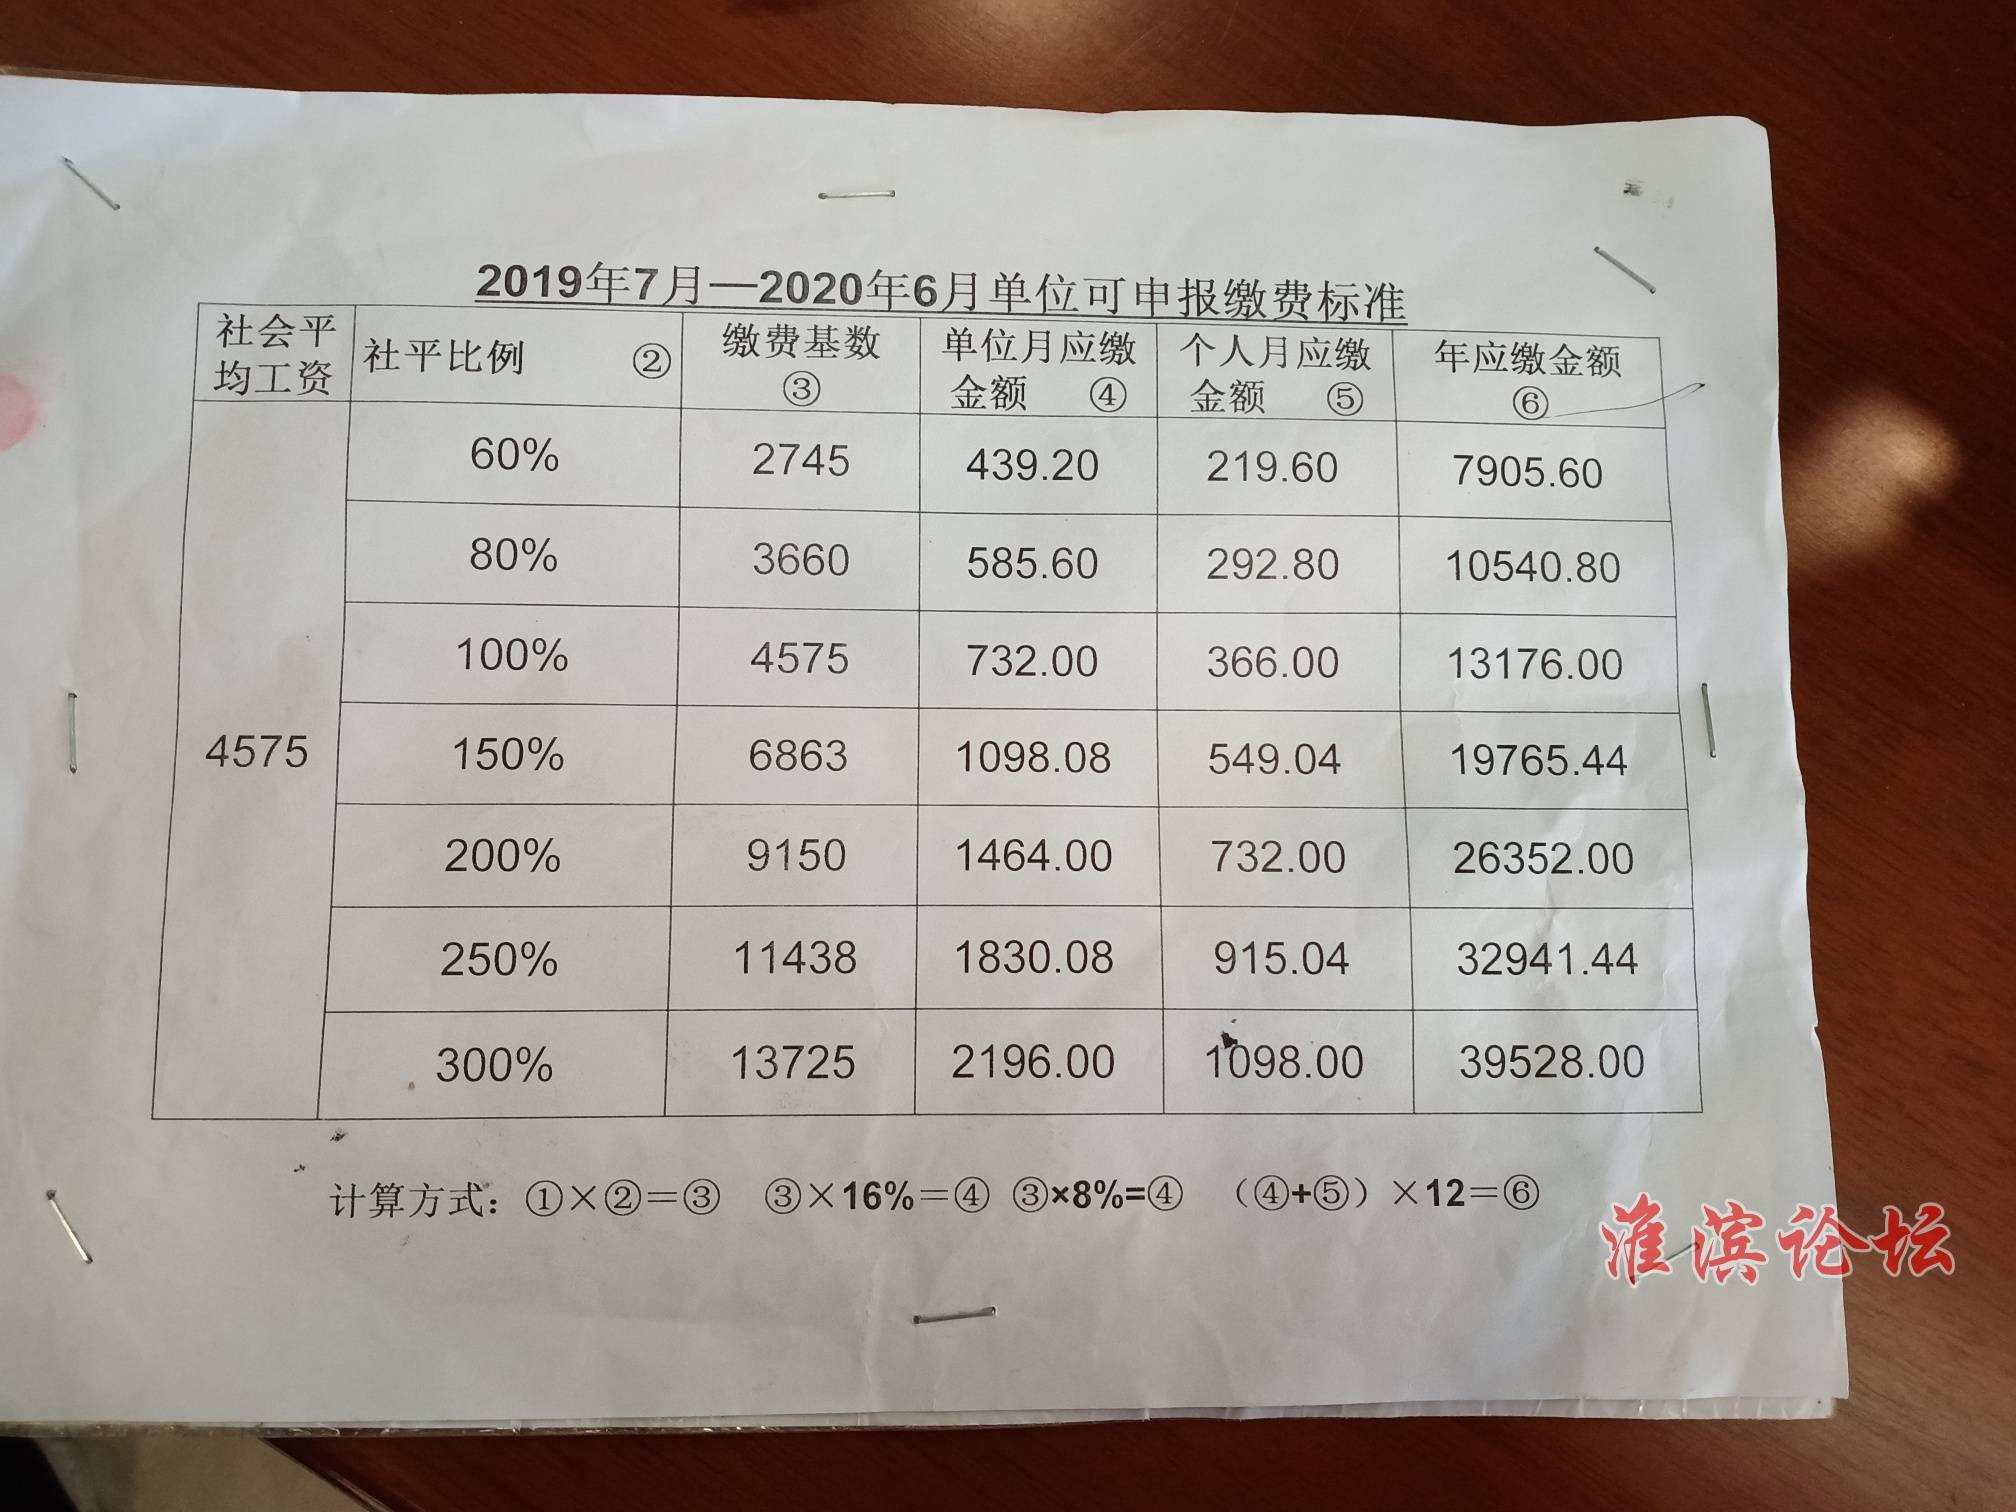 2019年7月—2020年6月单位可申报缴费标准
社会平均工资 社平比例 ② 缴费基数 ③ 单位月应缴金额 ④ 个人月应缴金额 ⑤ 年应缴金额 ⑥
4575
60% 2745 439.20 219.60 7905.60
80% 3660 585.60 292.80 10540.80
100% 4575 732.00 366.00 13176.00
150% 6863 1098.08 549.04 19765.44
200% 9150 1464.00 732.00 26352.00
250% 11438 1830.08 915.04 32941.44
300% 13725 2196.00 1098.00 39528.00
计算方式：①×②＝③ ③×16%＝④ ③×8%=④ （④+⑤）×12＝⑥
淮滨论坛